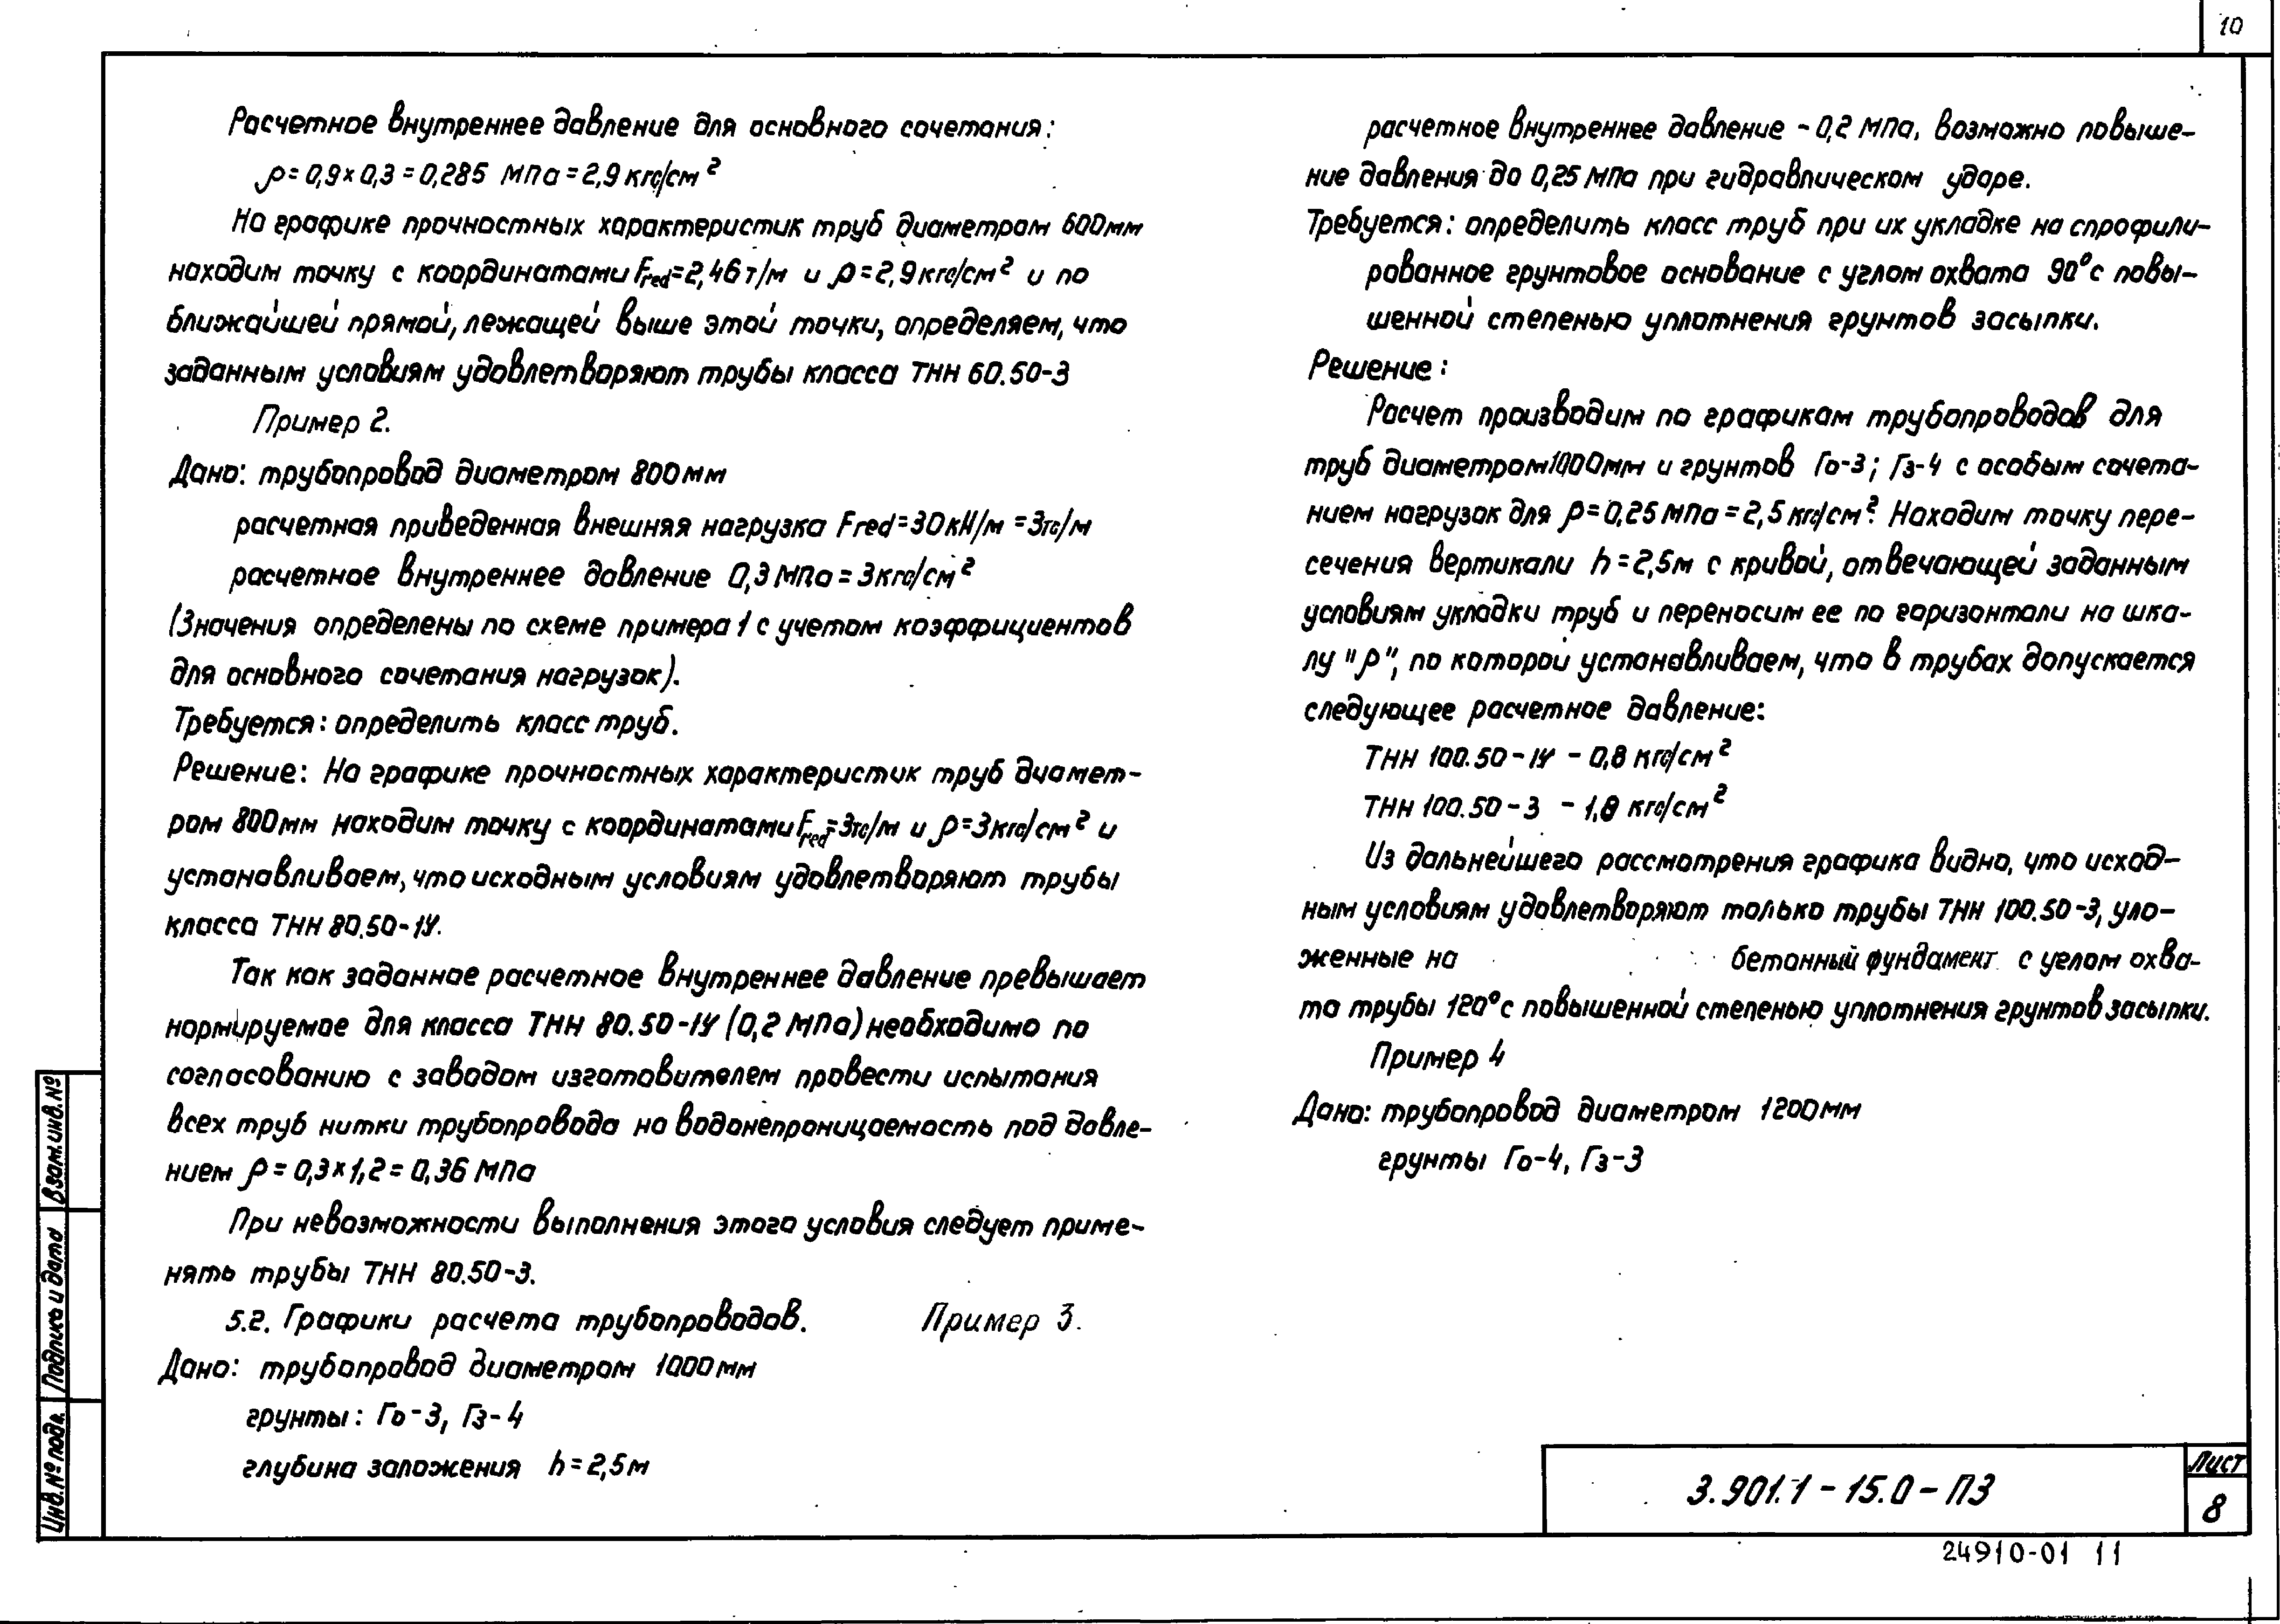 10
Расчетное внутреннее давление для основного сочетания:
р = 0,9 × 0,3 = 0,285 МПа = 2,9 кгс/см²
На графике прочностных характеристик труб диаметром 600мм
находим точку с координатами Fred=2,46 т/м и р = 2,9 кгс/см² и по
ближайшей прямой, лежащей выше этой точки, определяем, что
заданным условиям удовлетворяют трубы класса ТНН 60.50-3
Пример 2.
Дано: трубопровод диаметром 800мм
расчетная приведенная внешняя нагрузка Fred=30кН/м =3тс/м
расчетное внутреннее давление 0,3 МПа = 3кгс/см²
(Значения определены по схеме примера 1 с учетом коэффициентов
для основного сочетания нагрузок).
Требуется: определить класс труб.
Решение: На графике прочностных характеристик труб диамет-
ром 800мм находим точку с координатами Fred=3тс/м и р=3кгс/см² и
устанавливаем, что исходным условиям удовлетворяют трубы
класса ТНН 80.50-1У.
Так как заданное расчетное внутреннее давление превышает
нормируемое для класса ТНН 80.50-1У (0,2 МПа) необходимо по
согласованию с заводом изготовителем провести испытания
всех труб нитки трубопровода на водонепроницаемость под давле-
нием р = 0,3×1,2 = 0,36 МПа
При невозможности выполнения этого условия следует приме-
нять трубы ТНН 80.50-3.
5.2. Графики расчета трубопроводов. Пример 3.
Дано: трубопровод диаметром 1000мм
грунты: Го-3, Гз-4
глубина заложения h = 2,5м
расчетное внутреннее давление - 0,2 МПа, возможно повыше-
ние давления до 0,25 МПа при гидравлическом ударе.
Требуется: определить класс труб при их укладке на спрофили-
рованное грунтовое основание с углом охвата 90° с повы-
шенной степенью уплотнения грунтов засыпки.
Решение:
Расчет производим по графикам трубопроводов для
труб диаметром 1000мм и грунтов Го-3; Гз-4 с особым сочета-
нием нагрузок для р = 0,25 МПа = 2,5 кгс/см². Находим точку пере-
сечения вертикали h = 2,5м с кривой, отвечающей заданным
условиям укладки труб и переносим ее по горизонтали на шка-
лу "р", по которой устанавливаем, что в трубах допускается
следующее расчетное давление:
ТНН 100.50-1У - 0,8 кгс/см²
ТНН 100.50-3 - 1,8 кгс/см²
Из дальнейшего рассмотрения графика видно, что исход-
ным условиям удовлетворяют только трубы ТНН 100.50-3, уло-
женные на бетонный фундамент с углом охва-
та трубы 120° с повышенной степенью уплотнения грунтов засыпки.
Пример 4
Дано: трубопровод диаметром 1200мм
грунты Го-4, Гз-3
Взам.инв.№
Подпись и дата
Инв.№ подл.
3.901.1-15.0-ПЗ
Лист
8
24910-01 11